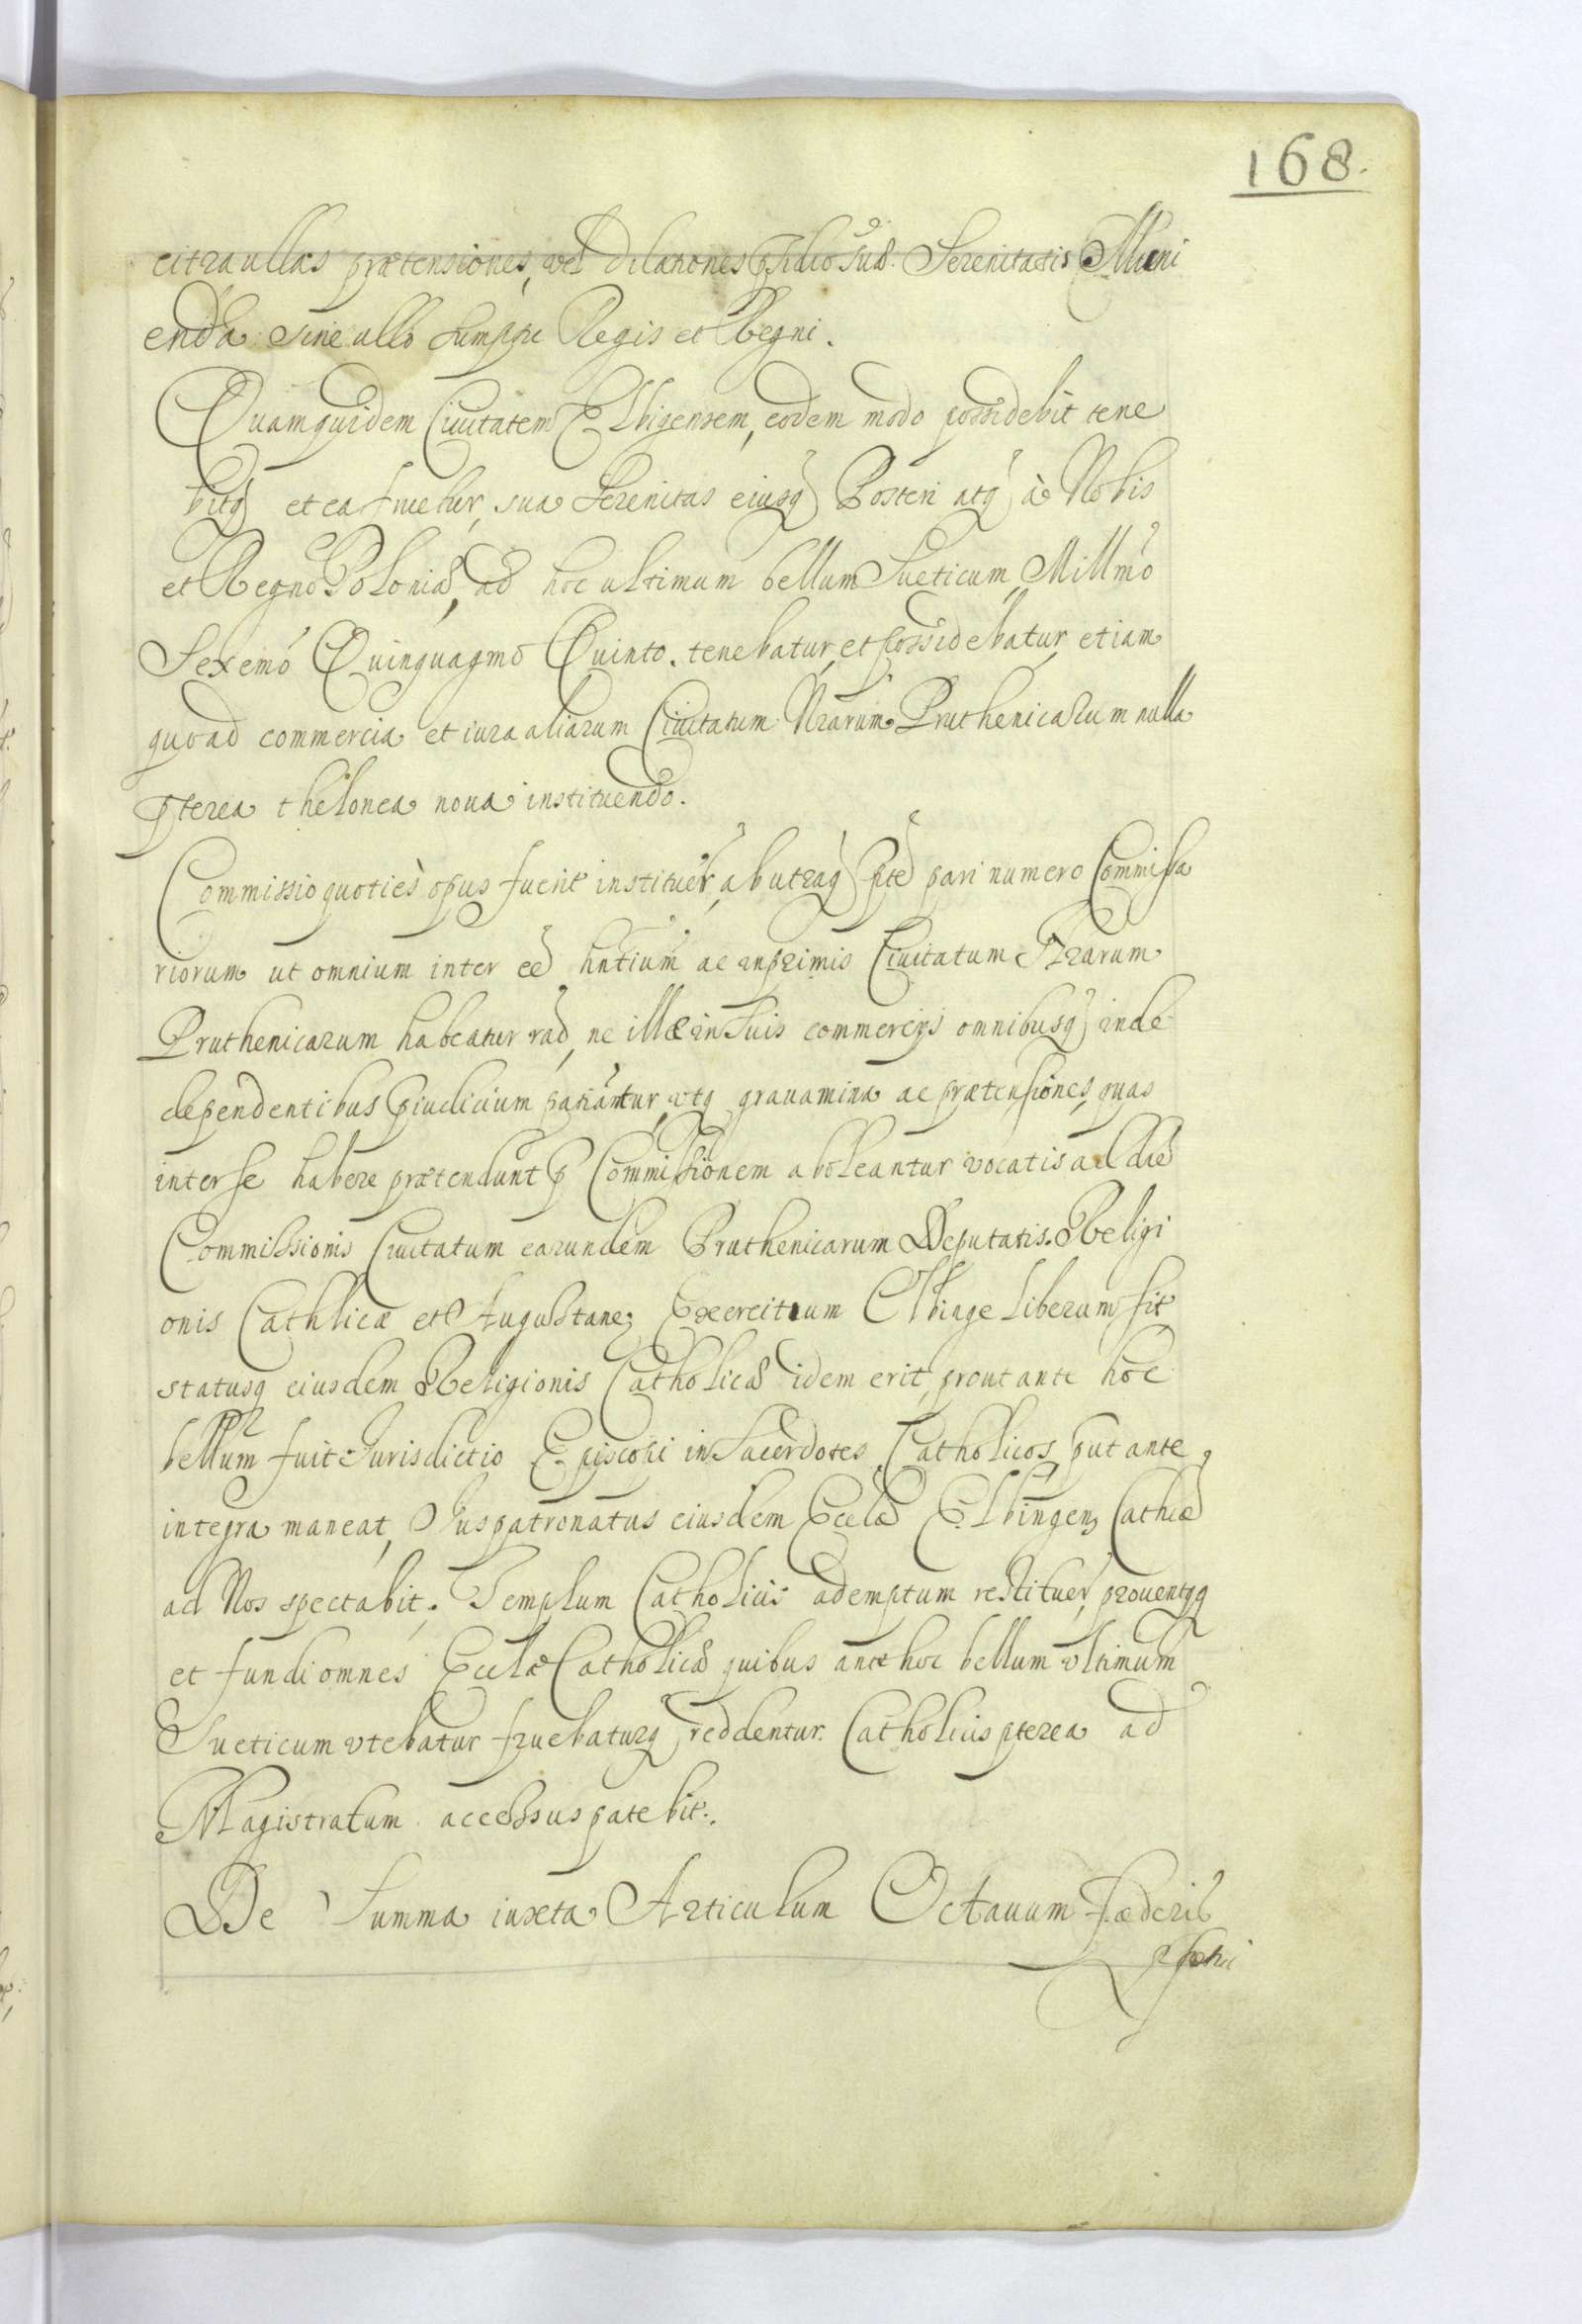 168.
citra ullas prætensiones, vel dilationes pſidio suæ Serenitatis Muni
enda sine ullo sumptu Regis et Regni.
Quamquidem Ciuitatem Elbigensem, eodem modo possidebit tene
bitq et ea fruetur, sua Serenitas eiusq Posteri atq à Nobis
et Regno Poloniæ, ad hoc ultimum bellum Sueticum, Millmo
Sexcmo Quinquagmo Quinto. tenebatur, et possidebatur, etiam
quoad commercia et iura aliarum Ciuitatum Nrarum Pruthenicarum nulla
pterea thelonea noua instituendo.
Commissio quoties opus fuerit instituer, ab utraq pte pari numero Commissa
riorum ut omnium inter eē hntium ac inprimis Ciuitatum Nrarum
Pruthenicarum habeatur raō, ne illæ in suis commercijs omnibusq inde
dependentibus piudicium patiantur, utq grauamina ac prætensiones, quas
inter se habere prætendunt p Commissionem aboleantur vocatis ad dāe
Commissionis Ciuitatum earundem Pruthenicarum Deputatis. Religi
onis Cathlicæ et Augustane; Exercitium Elbingæ liberum sit
statusq eiusdem Religionis Catholicæ idem erit, prout ante hoc
bellum fuit Jurisdictio Episcopi in Sacerdotes Catholicos, put ante,
integra maneat, Juspatronatus eiusdem Eccłæ Elbingen, Cathcæ
ad Nos spectabit. Templum Catholicis ademptum restituer, prouentqq
et fundi omnes Eccłæ Catholicæ quibus ante hoc bellum vltimum
Sueticum vtebatur fruebaturq reddentur. Catholicis pterea ad
Magistratum accessus patebit.
De Summa iuxta Articulum Octauum fæderis